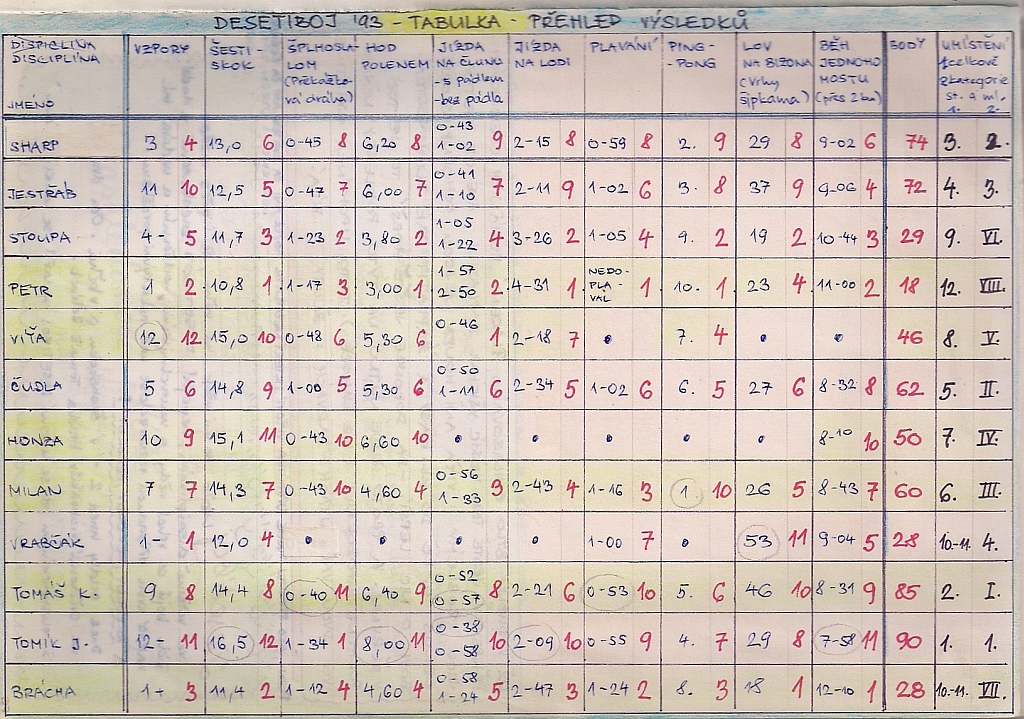 DESETIBOJ '93 - TABULKA - PŘEHLED VÝSLEDKŮ
DISCIPLÍNA JMÉNO VZPORY ŠESTI-SKOK ŠPLHOSLALOM (Překážková dráha) HOD POLENEM JÍZDA NA ČLUNU -s pádlem -bez pádla JÍZDA NA LODI PLAVÁNÍ PING-PONG LOV NA BIZONA (vrhy šipkama) BĚH JEDNOHO MOSTU (přes 2 km) BODY UMÍSTĚNÍ 1celkově 2kategorie st. a ml. 1. 2.
SHARP 3 4 13,0 6 0-45 8 6,20 8 0-43 1-02 9 2-15 8 0-59 8 2. 9 29 8 9-02 6 74 3. 2.
JESTŘÁB 11 10 12,5 5 0-47 7 6,00 7 0-41 1-10 7 2-11 9 1-02 6 3. 8 37 9 9-06 4 72 4. 3.
STOUPA 4- 5 11,7 3 1-23 2 3,80 2 1-05 1-22 4 3-26 2 1-05 4 9. 2 19 2 10-44 3 29 9. VI.
PETR 1 2 10,8 1 1-17 3 3,00 1 1-57 2-50 2 4-31 1 NEDO-PLA-VAL 1 10. 1 23 4 11-00 2 18 12. VIII.
VIŤA 12 12 15,0 10 0-48 6 5,30 6 0-46 1 2-18 7 • 7. 4 • • 46 8. V.
ČUDLA 5 6 14,8 9 1-00 5 5,30 6 0-50 1-11 6 2-34 5 1-02 6 6. 5 27 6 8-32 8 62 5. II.
HONZA 10 9 15,1 11 0-43 10 6,60 10 • • • • • 8-10 10 50 7. IV.
MILAN 7 7 14,3 7 0-43 10 4,60 4 0-56 1-33 3 2-43 4 1-16 3 1. 10 26 5 8-43 7 60 6. III.
VRABČÁK 1- 1 12,0 4 • • • • 1-00 7 • 53 11 9-04 5 28 10.-11. 4.
TOMÁŠ K. 9 8 14,4 8 0-40 11 6,40 9 0-52 0-57 8 2-21 6 0-53 10 5. 6 46 10 8-31 9 85 2. I.
TOMÍK J. 12- 11 16,5 12 1-34 1 8,00 11 0-38 0-58 10 2-09 10 0-55 9 4. 7 29 8 7-58 11 90 1. 1.
BRÁCHA 1+ 3 11,4 2 1-12 4 4,60 4 0-58 1-24 5 2-47 3 1-24 2 8. 3 18 1 12-10 1 28 10.-11. VII.